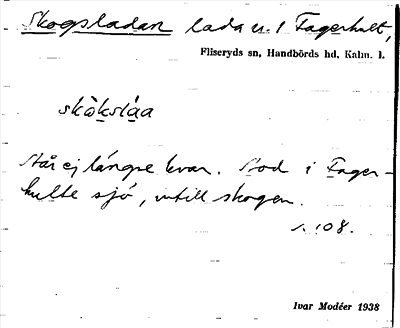 Skogsladan lada u. 1 Fagerhult,
Fliseryds sn, Handbörds hd, Kalm. l.
skòksláa
Står ej längre kvar. Stod i Fager-
hults sjö, intill skogen.
s. 108.
Ivar Modéer 1938